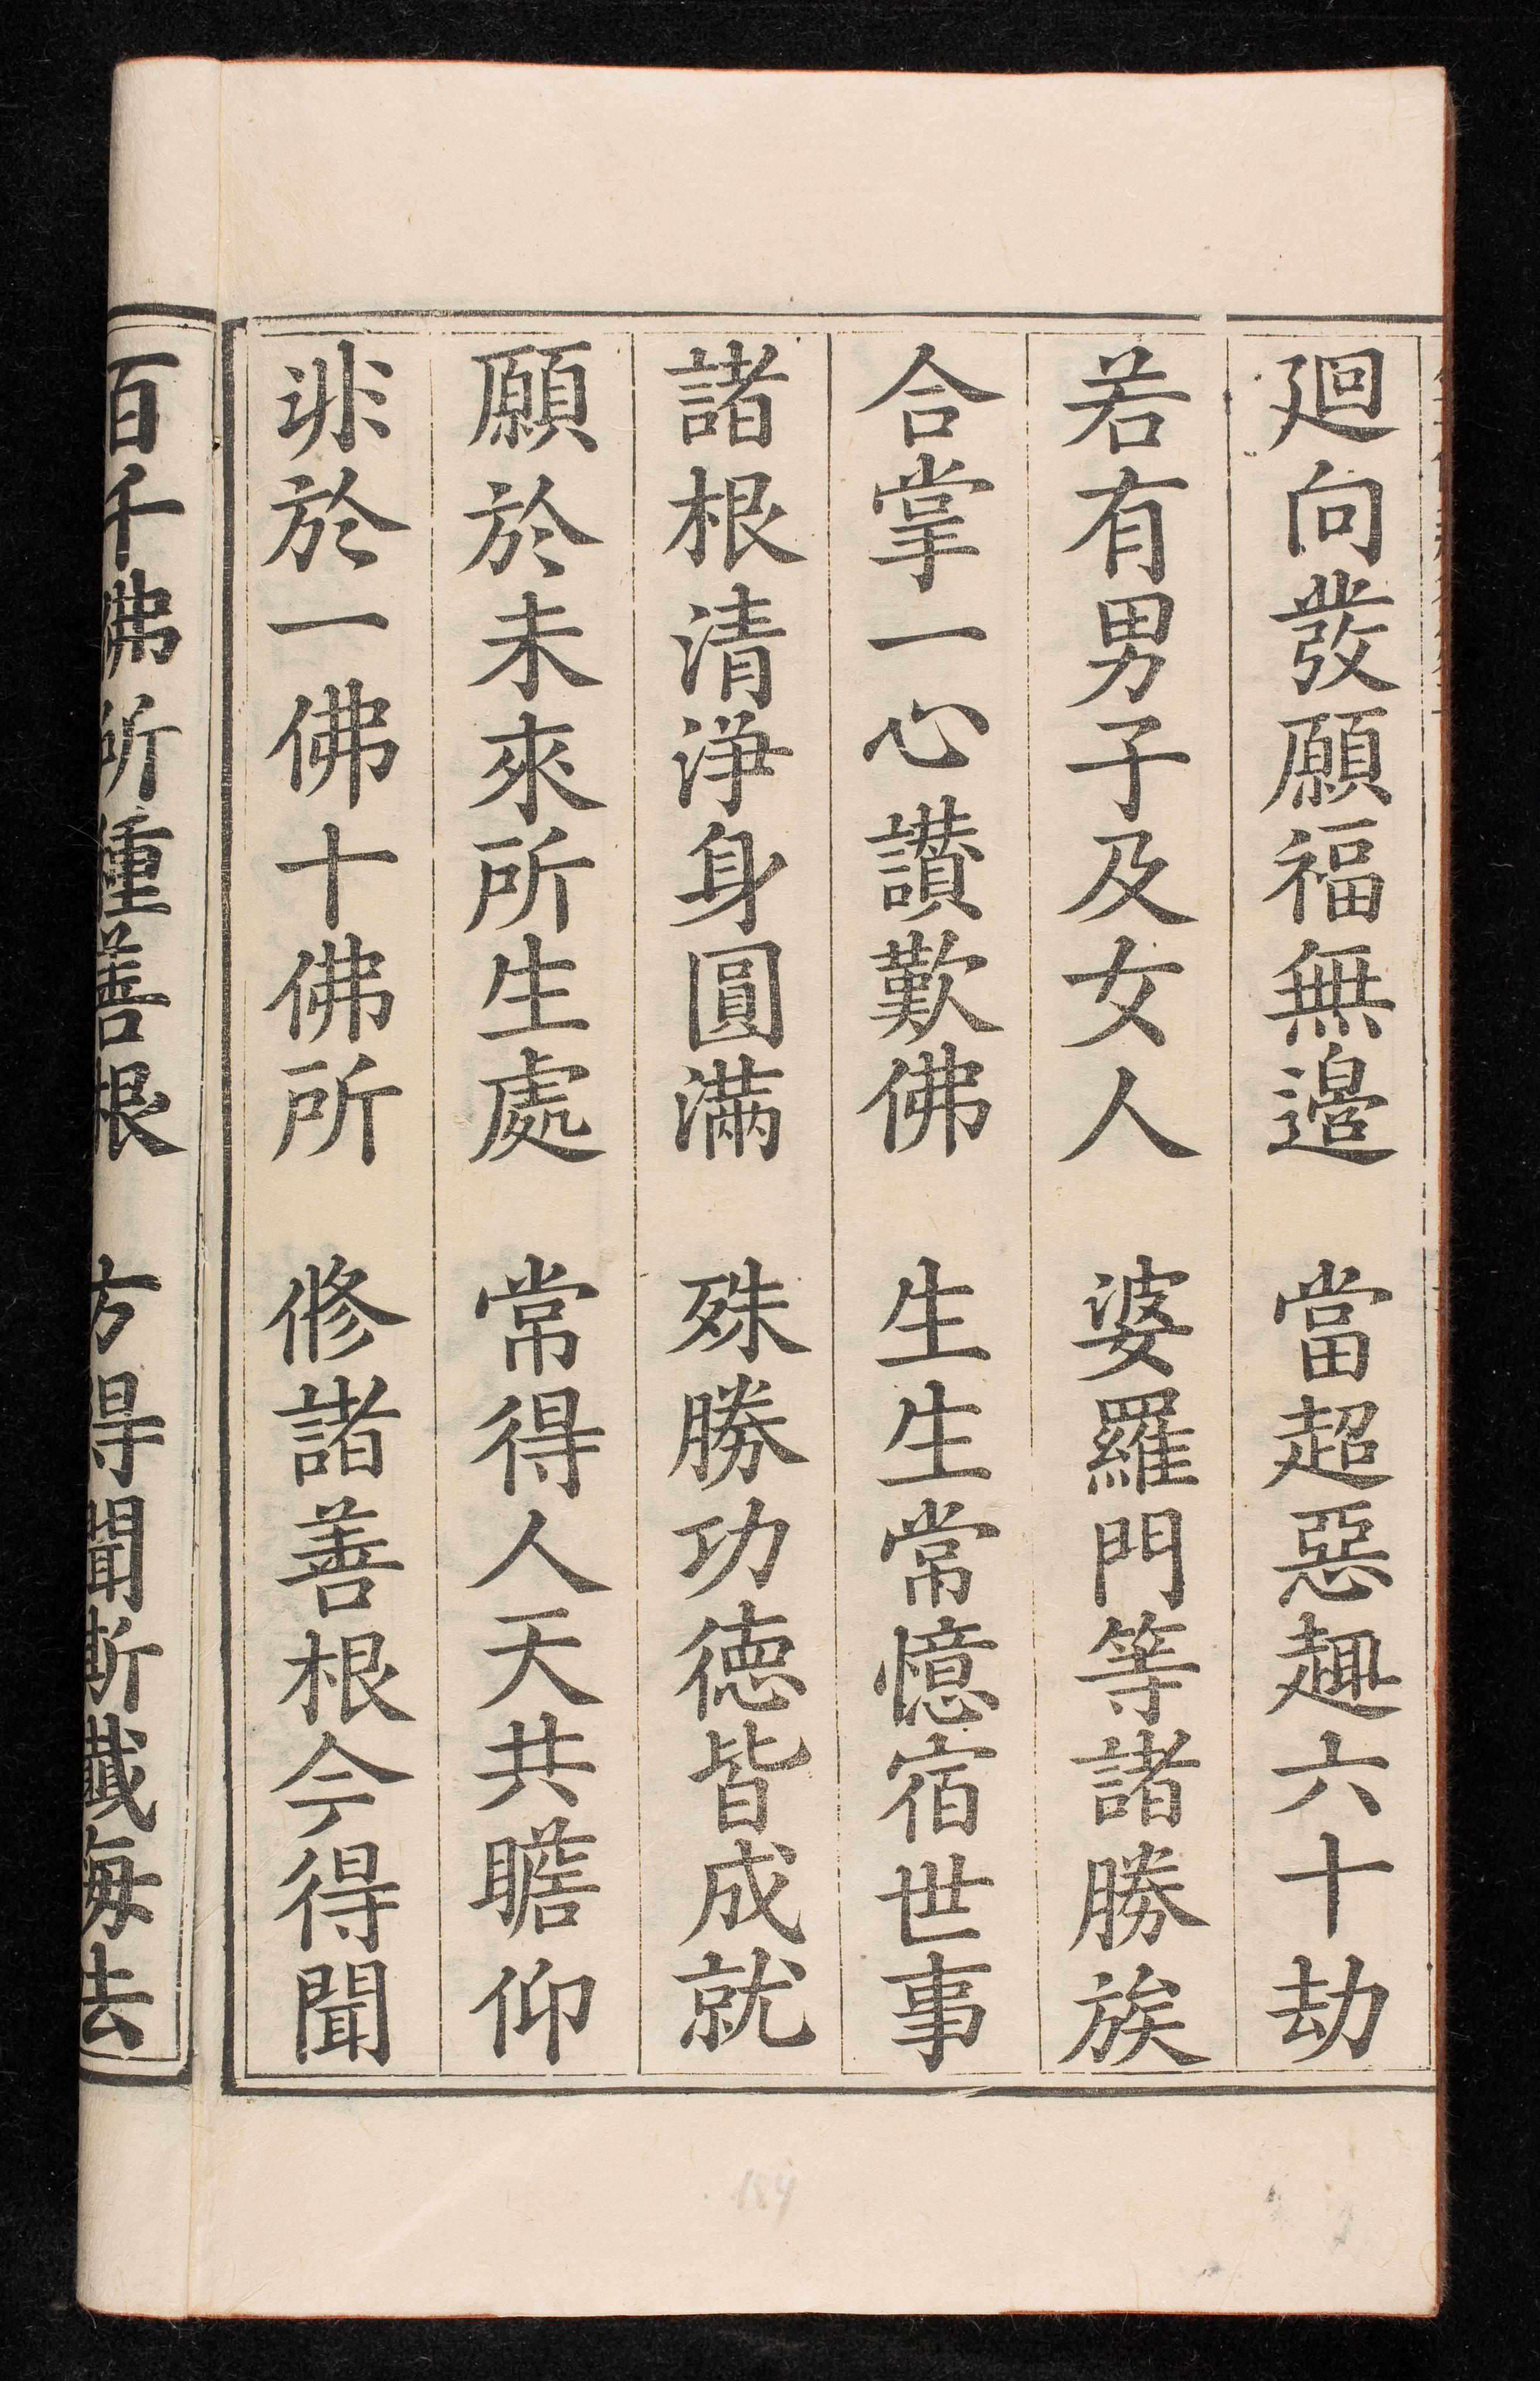 廻向發願福無邊　當超惡趣六十劫
若有男子及女人　婆羅門等諸勝族
合掌一心讃歎佛　生生常憶宿世事
諸根清浄身圓滿　殊勝功徳皆成就
願於未來所生處　常得人天共瞻仰
非於一佛十佛所　修諸善根今得聞
百千佛所種善根　方得聞斯懺悔法